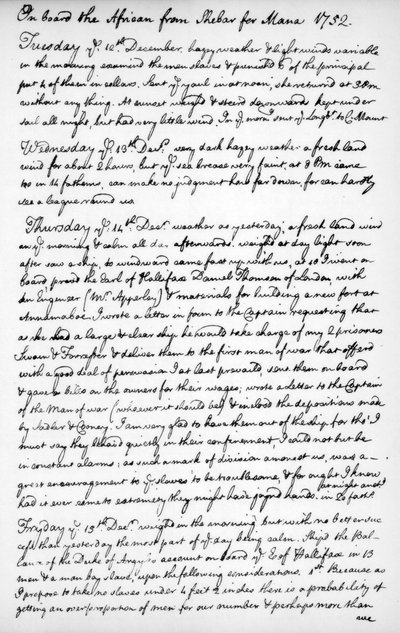 On board the African from Shebar for Mana 1752.
Tuesday yᵉ 12th December, hazey weather & light winds variable
in the morning examind the men slaves & punished 6 of the principal
put 4 of them in collars. Sent yᵉ yaul in at noon, she returned at 3 PM
without any thing. At sunset weighd & steerd downwards kept under
sail all night, but had very little wind. In yᵉ mornᵍ sent yᵉ Longbᵗ to C Mount
Wednesday yᵉ 13th Decʳ. very dark hazey weather a fresh land
wind for about 2 hours, but yᵉ sea breese very faint, at 8 PM came
too in 14 fathoms, can make no judgment how far down, for can hardly
see a league round us.
Thursday yᵉ 14th Decʳ. weather as yesterday, a fresh land wind
in yᵉ morning & calm all day afterwards. weighd at day light soon
after saw a ship, to windward came fast up with us, at 10 I went on
board, provd the Earl of Hallifax Daniel Thomson of London, with
an Engineer (Mʳ. Apperley) & materials for building a new fort at
Annamaboe. I wrote a letter in form to the Captain requesting that
as he had a large & clear ship he would take charge of my 2 prisoners
Swain & Forrester & deliver them to the first man of war that offerd
with a good deal of perswasion I at last prevaild, sent them on board
& gave bills on the owners for their wages; wrote a letter to the Captain
of the Man of war (whoever it should be) & inclosd the depositions made
by Sadler & Cooney. I am very glad to have them out of the ship for tho' I
must say they behavd quietly in their confinement, I could not but be
in constant alarms; as such a mark of division amongst us, was a
great encouragement to yᵉ slaves to be troublesome, & for ought I know
had it ever come to extremity they might have joynd hands. at night anchᵈ in 20 faths.
Fryday yᵉ 15th Decʳ. weighd in the morning but with no better suc
cess than yesterday the most part of yᵉ day being calm. Shipd the Bal-
lance of the Duke of Argyle's account on board yᵉ E. of Hallifax in 13
men & a man boy slave, upon the following considerations. 1st Because as
I propose to take no slaves under 4 feet 2 inches there is a probability of
getting an overproportion of men for our number & perhaps more than
we